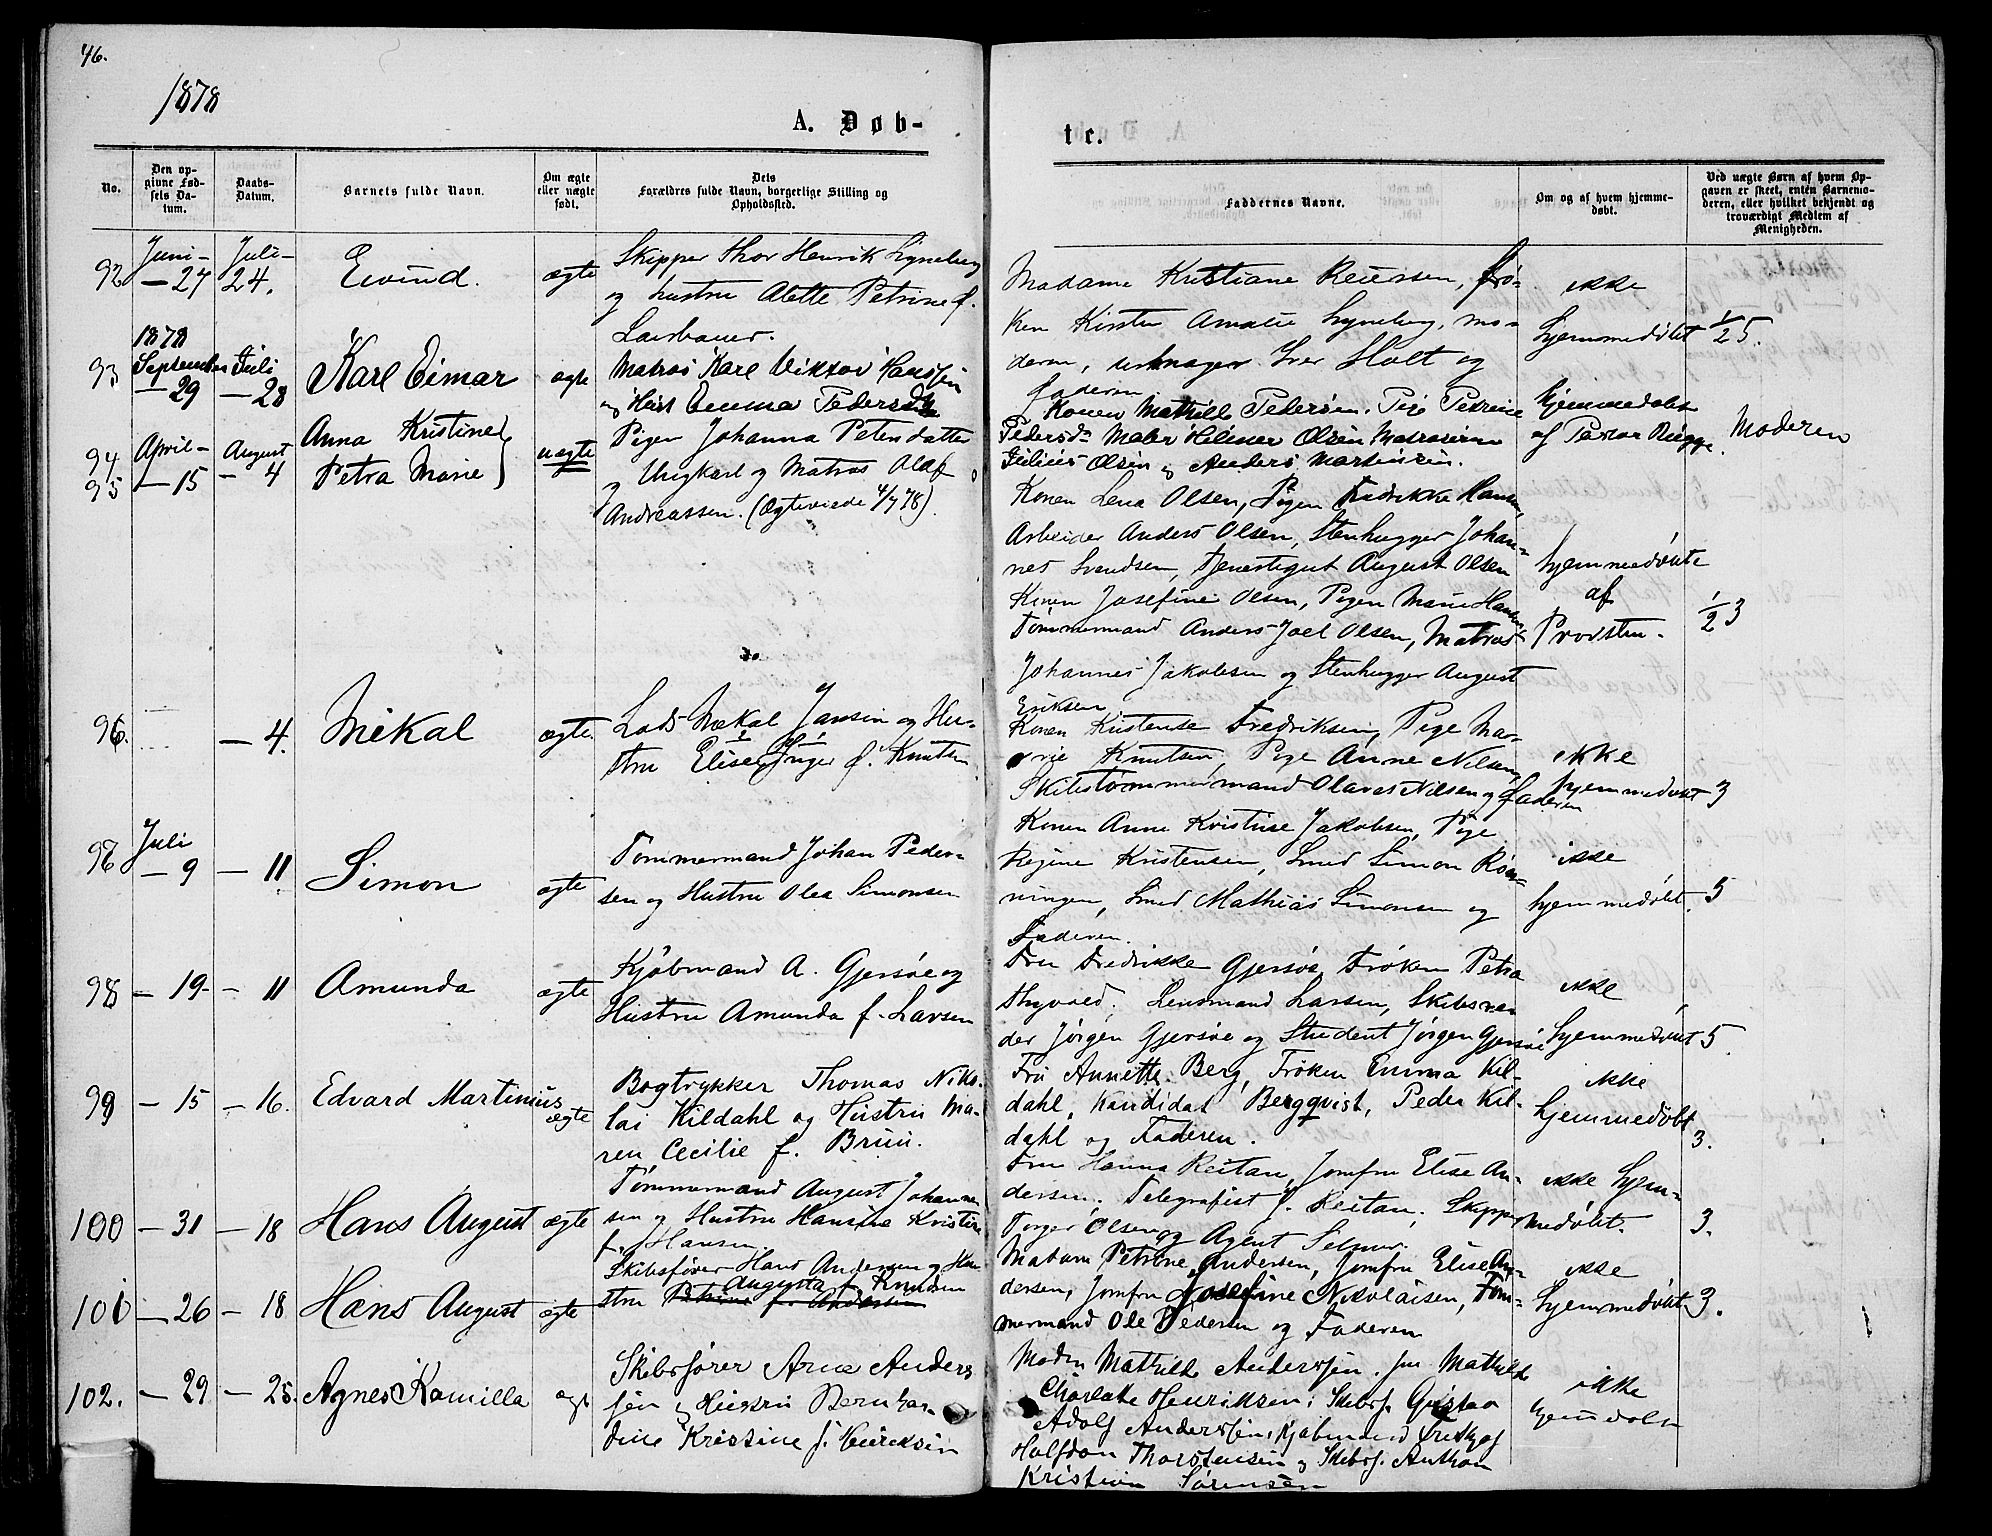 46.
1878
A. Døb-
No.
Den opgivne Fødsels Datum.
Daabs-Datum.
Barnets fulde Navn.
Om ægte eller uægte født.
Dets Forældres fulde Navn, borgerlige Stilling og Opholdssted.
92
Juni-
— 27
Juli-
24.
Eivind.
ægte
Skipper Thor Henrik Lyneborg
og Hustru Alette Petrine f.
93
1878
September
— 29
Juli
— 28
Karl Eimar
ægte
Matros Karl Viktor Hanssen
og Hust Emma Pedersdtr
94
95
April-
— 15
August
— 4
Anna Kristine
Petra Marie
uægte
Pigen Johanna Petersdatter
og Ungkarl og Matros Olaf
Andreassen. (Ægteviede 4/7 78).
96.
— 4.
Mikal
ægte.
Lods Mekal Jansen og Hu-
stru Elise Inger f. Knutsen
97
Juli
— 9
— 11
Simon
ægte
Tømmermand Johan Peder-
sen og Hustru Olea Simonsen
98
— 19-
— 11
Amunda
ægte
Kjøbmand A. Gjersøe og
Hustru Amunda f. Larsen
99
— 15
— 16.
Edvard Martinius
ægte
Bogtrykker Thomas Niko-
lai Kildahl og Hustru Ma-
ren Cecilie f. Bruu.
100
— 31
— 18
Hans August
ægte
Tømmermand August Johanne-
sen og Hustru Hansine Kristine
f. Hansen
101
— 26
— 18
Hans August
ægte
Skibsfører Hans Andersen og Hu-
Augusta f. Knudsen
stru Petrine f. Andersen
102.
— 29
— 25.
Agnes Kamilla
ægt
Skibsfører Arne Anders
sen og Hustru Bernhar-
dine Kristine f. Henriksen
te.
Faddernes Navne.
Om og af hvem hjemmedøbt.
Ved uægte Børn af hvem Opgaven er skeet, enten Barnemoderen, eller hvilket bekjendt og troværdigt Medlem af Menigheden.
Madame Kristiane Reiersen, Frø-
ken Kirsten Amalie Lyneborg, mo-
deren, urmager Iver Holt og
faderen
ikke
hjemmedøbt
1/25.
Konen Mathilde Pedersen. Pige Petrine
Pedersd. Maler Hilmer Olsen Matroserne
Julius Olsen og Anders Martinsen.
hjemmedøbt
af Pastor Rugge
Moderen
Konen Lena Olsen, Pigen Fredrikke Hansen,
Arbeider Anders Olsen, Stenhugger Johan-
nes Svendsen, Tjenestegut August Olsen
Konen Josefine Olsen, Pigen Marie Hansen
Tømmermand Anders Joel Olsen, Matros
Johannes Jakobsen og Stenhugger August
Eriksen
hjemmedøbte
af
Provsten.
1/2 3
Konen Kristense Fredriksen, Pige Ma-
rie Knutsen, Pige Anne Nilsen,
Skibstømmermand Olaves Nilsen og Faderen
ikke
hjemmedøbt
3
Konen Anne Kristine Jakobsen, Pige
Regine Kristensen, Smed Simon Røn-
ningen, Smed Mathias Simonsen og
Faderen.
ikke
hjemmedøbt.
5
Fru Fredrikke Gjersøe, Frøken Petra
Thyvold, Lensmand Larsen, Skibsre-
der Jørgen Gjersøe og Student Jørgen Gjersøe
ikke
hjemmedøbt
5.
Fru Annette Berg, Frøken Emma Kil-
dahl, kandidat Bergqvist, Peder Kil-
dahl og Faderen.
ikke
hjemmedøbt
3.
Fru Hanna Reitan, Jomfru Elise An-
dersen, Telegrafist J. Reitan, Skipper
Torger Olsen og Agent Selmer.
ikke hjem-
medøbt.
3.
Madam Petrine Andersen, Jomfru Elise An-
dersen, Jomfru Josefine Nikolaisen, Tøm-
mermand Ole Pedersen og Faderen
ikke
hjemmedøbt
3.
Modn Mathilde Anderssen. Jm Mathilde
Charlotte Henriksen, Skibsf. Gustav
Adolf Anderssen, Kjøbmand
Halfdan Thorstensen og Skibsf. Anthon
Kristian Sørensen
ikke
hjemdøbt